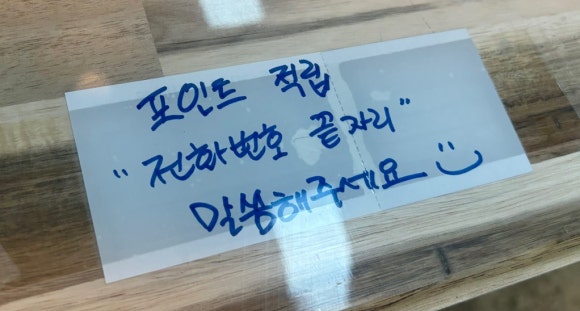 포인트 적립
"전화번호 끝자리"
말씀해주세요